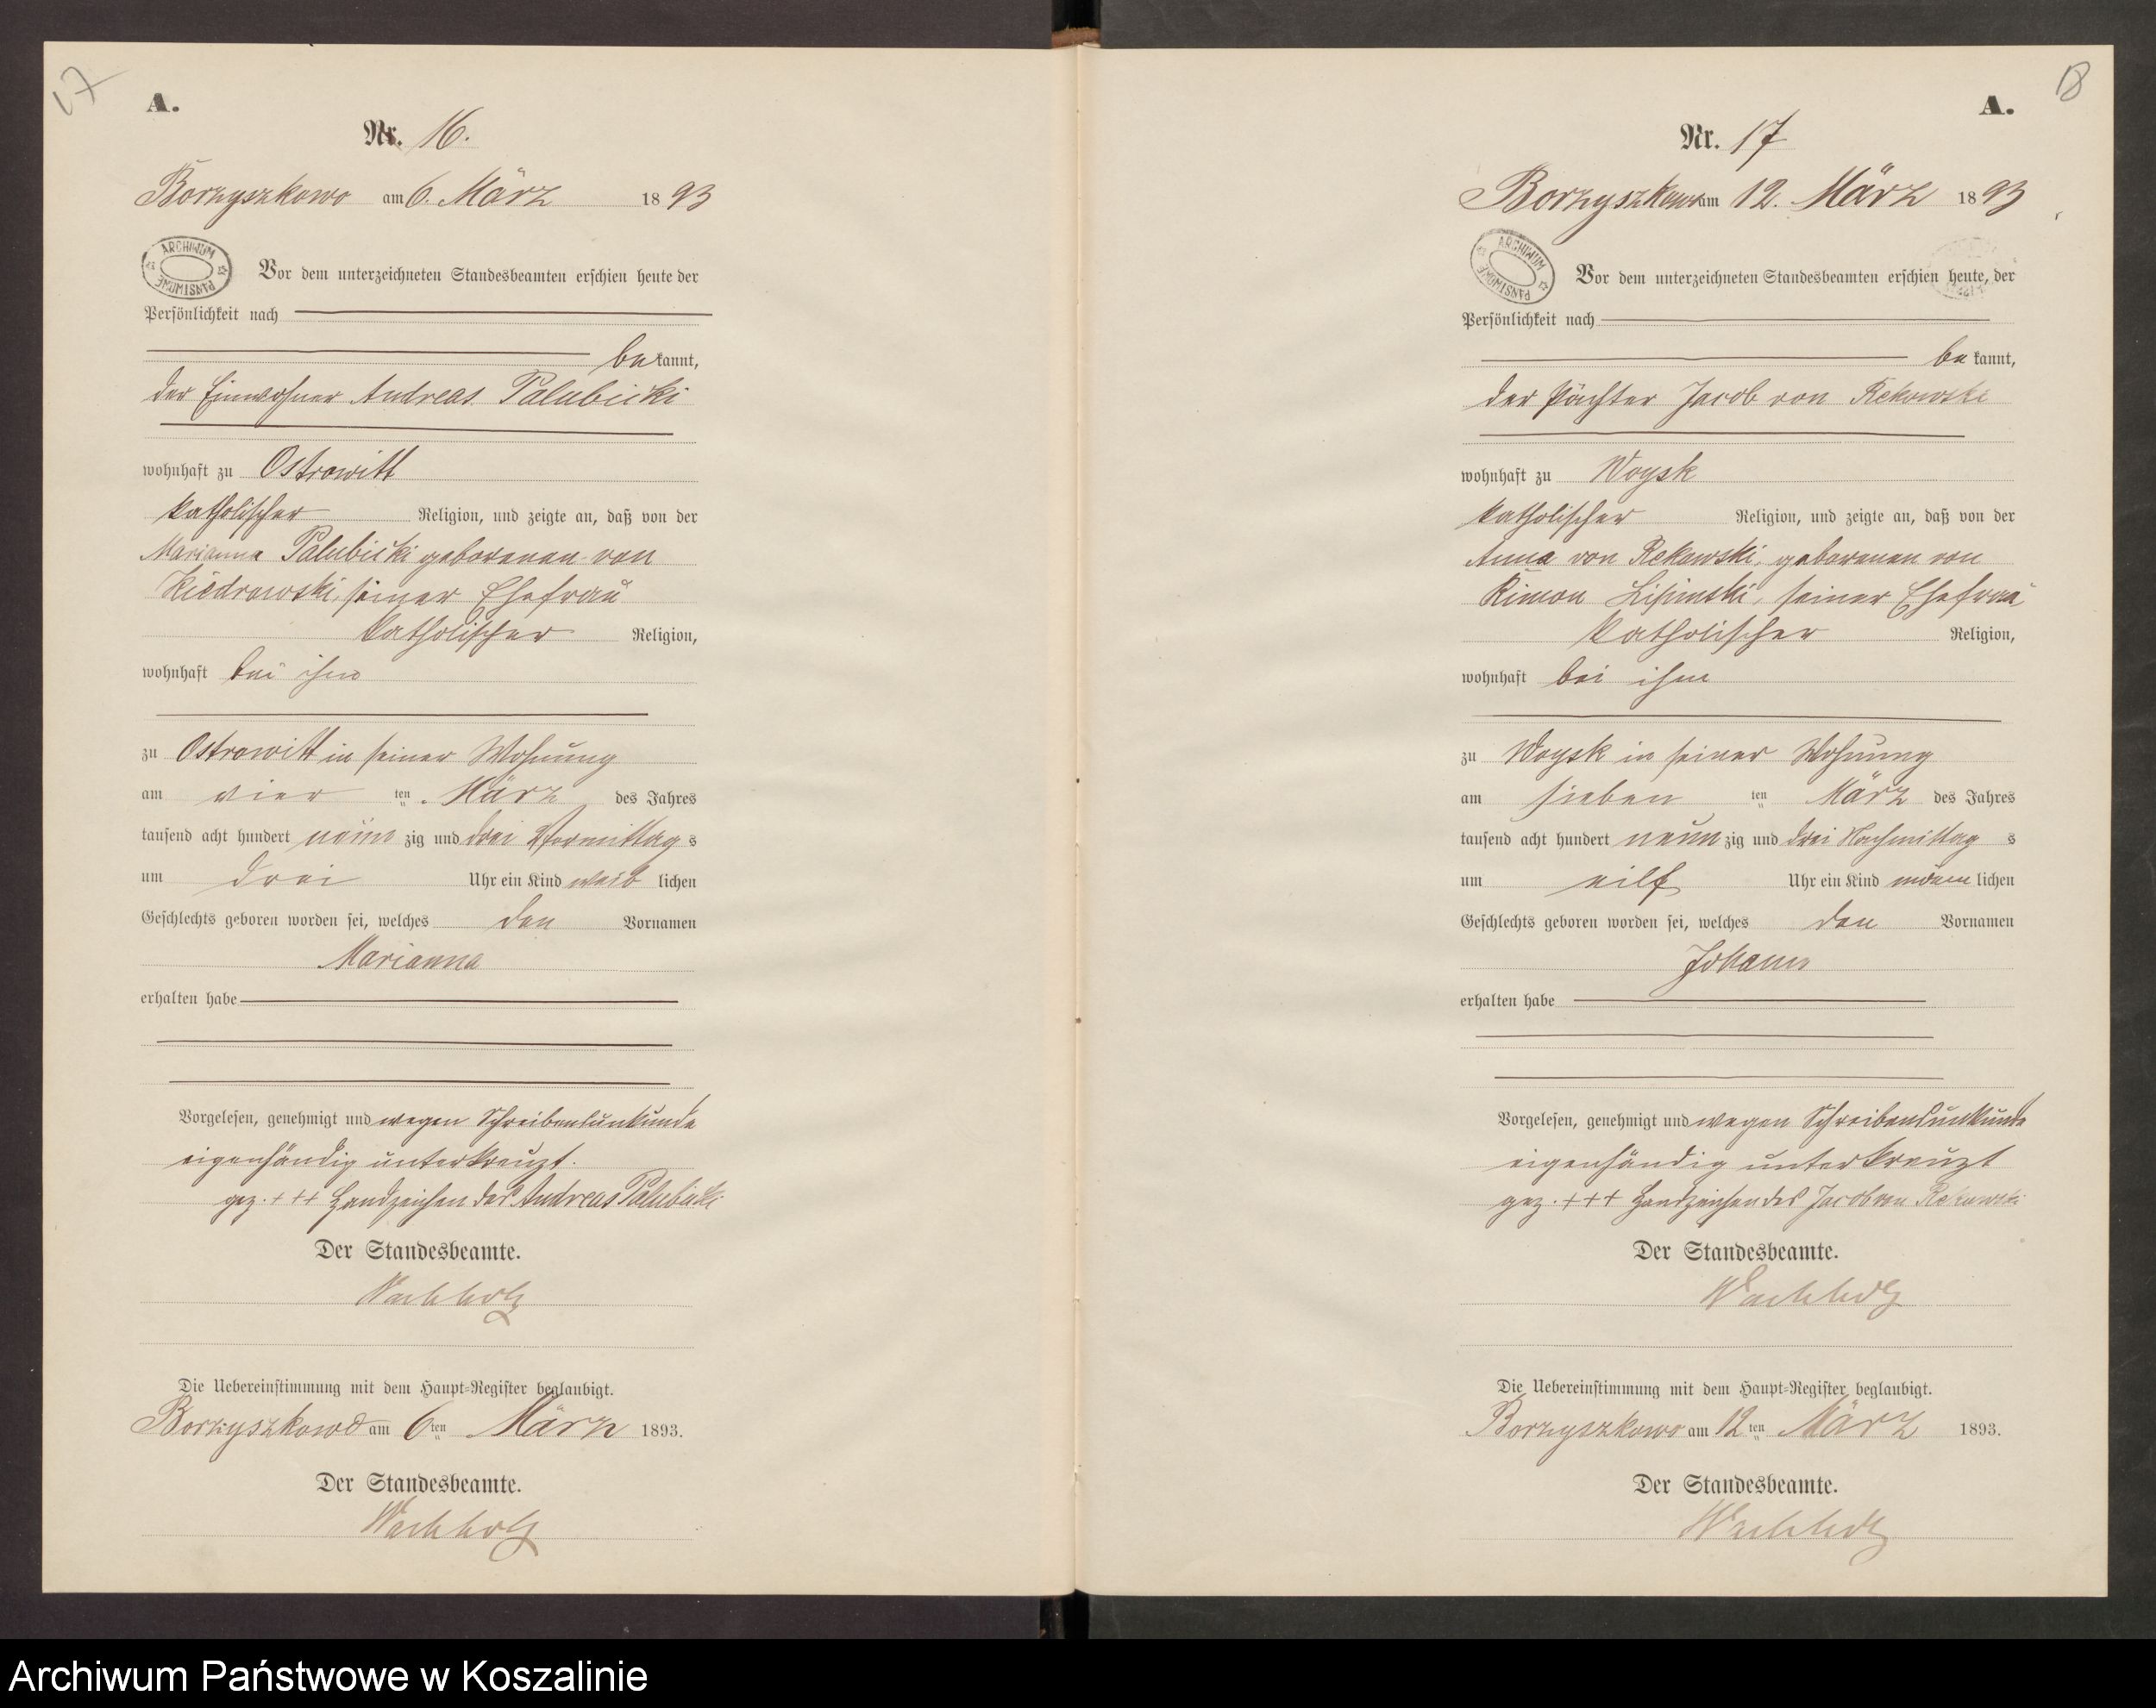 17
A.
Nr. 16.
Borzyszkowo am 6. März 1893
ARCHIWUM PAŃSTWOWE
Vor dem unterzeichneten Standesbeamten erschien heute der
Persönlichkeit nach
bekannt,
der Einwohner Andreas Palubicki
wohnhaft zu Ostrowitt
katholischer Religion, und zeigte an, daß von der
Marianna Palubicki geborenen von
Kiedrowski, seiner Ehefrau
katholischer Religion,
wohnhaft bei ihm
zu Ostrowitt in seiner Wohnung
am vier ten März des Jahres
tausend acht hundert neun zig und drei Vormittag s
um drei Uhr ein Kind weib lichen
Geschlechts geboren worden sei, welches den Vornamen
Marianna
erhalten habe
Vorgelesen, genehmigt und wegen Schreibensunkunde
eigenhändig unterkreuzt.
gez. +++ Handzeichen des Andreas Palubicki
Der Standesbeamte.
Wachholz
Die Uebereinstimmung mit dem Haupt-Register beglaubigt.
Borzyszkowo am 6ten März 1893.
Der Standesbeamte.
Wachholz
18
A.
Nr. 17
Borzyszkowo am 12. März 1893
ARCHIWUM PAŃSTWOWE
Vor dem unterzeichneten Standesbeamten erschien heute, der
Persönlichkeit nach
bekannt,
der Pächter Jacob von Rekowski
wohnhaft zu Woysk
katholischer Religion, und zeigte an, daß von der
Anna von Rekowski, geborenen von
seiner Ehefrau
katholischer Religion,
wohnhaft bei ihm
zu Woysk in seiner Wohnung
am sieben ten März des Jahres
tausend acht hundert neun zig und drei Nachmittag s
um eilf Uhr ein Kind männ lichen
Geschlechts geboren worden sei, welches den Vornamen
Johann
erhalten habe
Vorgelesen, genehmigt und wegen Schreibensunkunde
eigenhändig unterkreuzt
gez. +++ Handzeichen des Jacob von Rekowski
Der Standesbeamte.
Wachholz
Die Uebereinstimmung mit dem Haupt-Register beglaubigt.
Borzyszkowo am 12ten März 1893.
Der Standesbeamte.
Wachholz
Archiwum Państwowe w Koszalinie